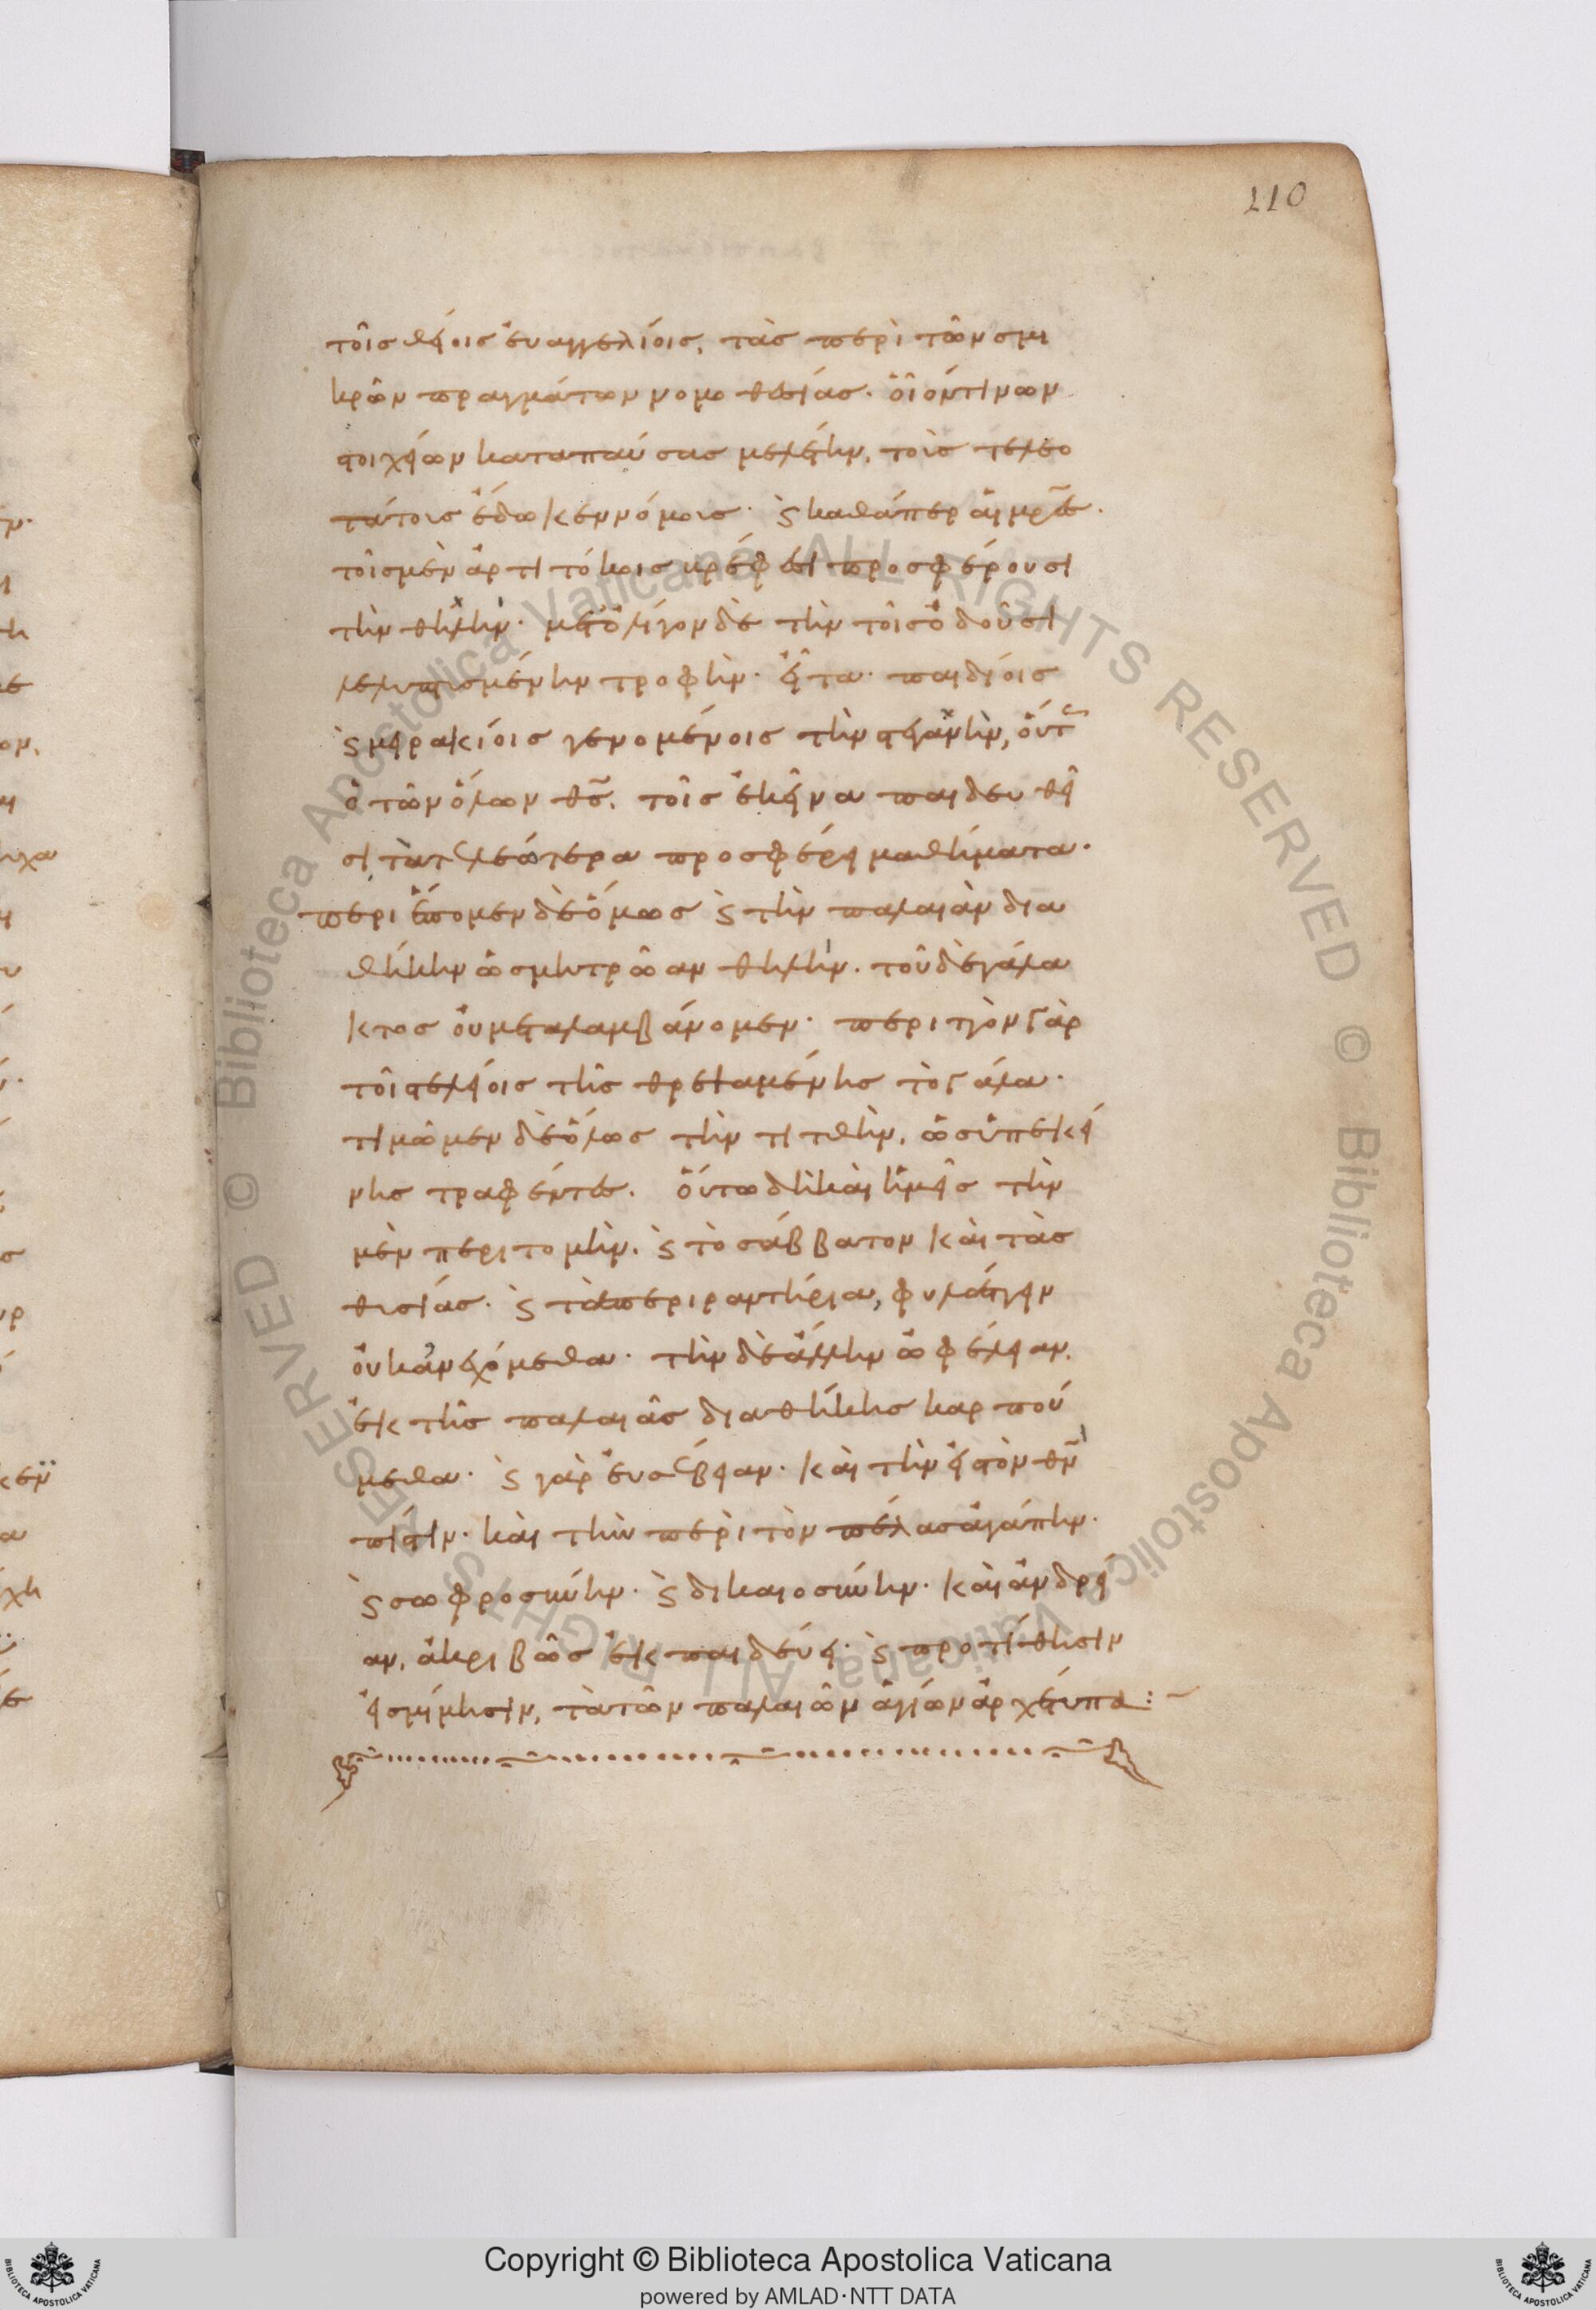 110
τοῖς θείοις εὐαγγελίοις, τὰς περὶ τῶν σμι
κρῶν πραγμάτων νομοθεσίας· οἱοντινῶν
στοιχείων καταπαύσας μελέτην, τοῖς τελεω
τάτοις ἔδωκεν νόμοις· ϛ καθάπερ αἱ μρ̃ες·
τοῖς μὲν ἀρτιτόκοις βρέφεσι προσφέρουσι
τὴν θηλὴν· μετολίγον δὲ τὴν τοῖς ὀδοῦσι
λελυπισμένην τροφὴν· εἶτα· παιδίοις
ϛ μειρακίοις γενομένοις τὴν στεγανὴν, οὕτως
ὁ τῶν ὅλων θσ̃. τοῖς ἐκεῖνα παιδευθεῖ
σι τὰ τελεώτερα προσφέρει μαθήματα·
περιέπομεν δὲ ὅμως ϛ τὴν παλαιὰν δια
θήκην ὡς μητρῴαν θηλὴν. τοῦ δὲ γάλα
κτος οὐ μεταλαμβάνομεν· περιττὸν γὰρ
τοῖς τελείοις τῆς θρεψαμένης τὸ γάλα·
τιμῶμεν δὲ ὅλως τὴν τιτθὴν, ὡς ὑπ' ἐκεί
νης τραφέντες. οὕτω δὴ καὶ ἡμεῖς τὴν
μὲν περιτομὴν. ϛ τὸ σάββατον καὶ τὰς
θυσίας· ϛ τὰ περιραντήρια, φυλάττειν
οὐκ ἀνεχόμεθα· τὴν δὲ ἄλλην ὠφέλειαν.
ἐκ τῆς παλαιᾶς διαθήκης καρπού
μεθα· ϛ γὰρ εὐσέβειαν· καὶ τὴν εἰς τὸν θν̃
πίστιν· καὶ τὴν περὶ τὸν πέλας ἀγάπην·
ϛ σωφροσύνην· ϛ δικαιοσύνην· καὶ ἀνδρεί
αν, ἀκριβῶς ἐκπαιδεύει· ϛ προτίθησιν
εἰς μίμησιν, τὰ τῶν παλαιῶν ἁγίων ἀρχέτυπα:~
Copyright © Biblioteca Apostolica Vaticana
powered by AMLAD·NTT DATA